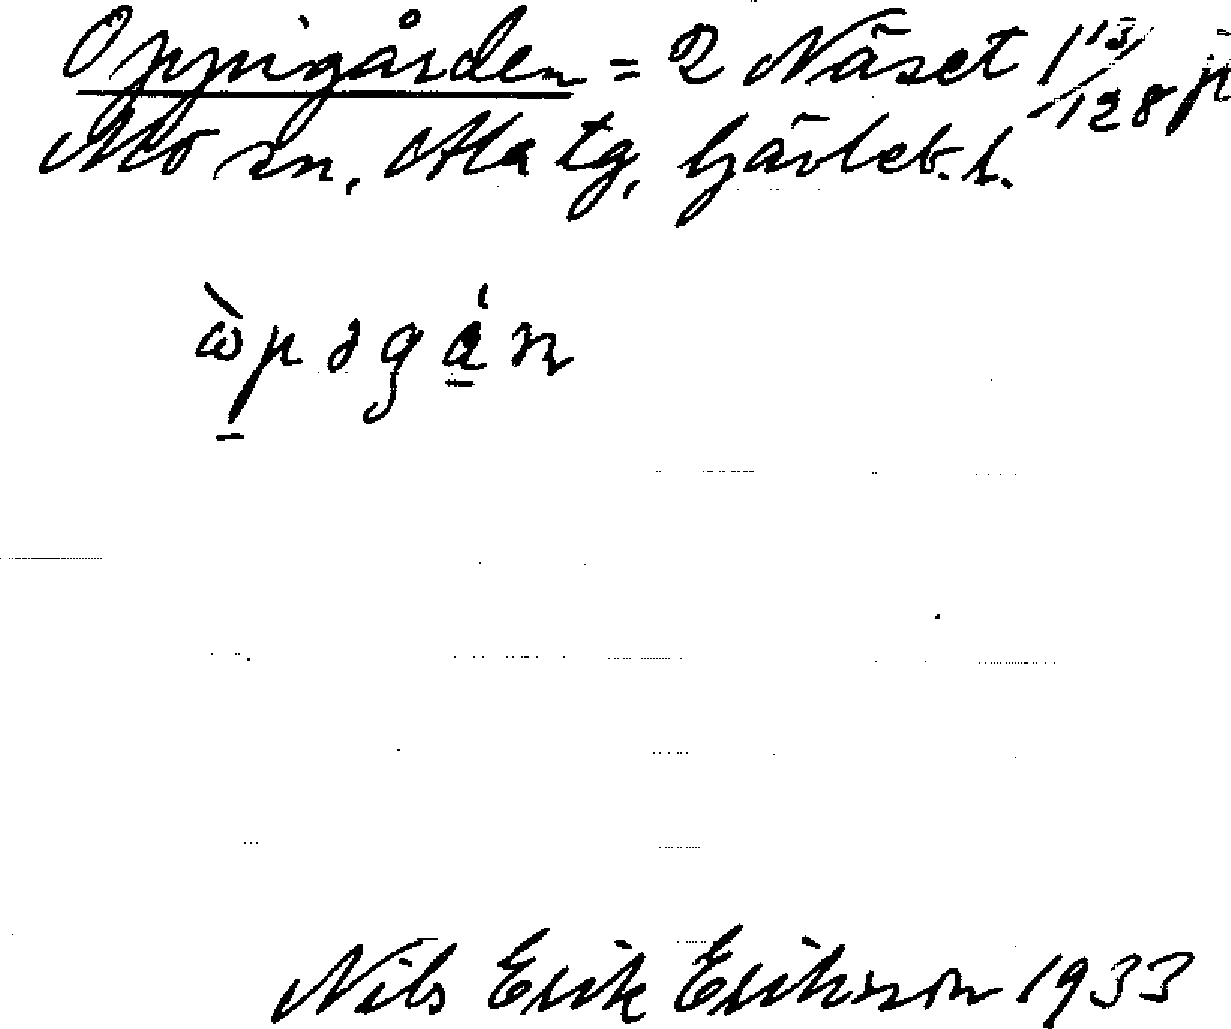 Oppigården = 2 Näset 1 13/128 p
Mo sn, Ala tg, Gävleb. l.
ὼpəgá̠n
Nils Erik Eriksson 1933